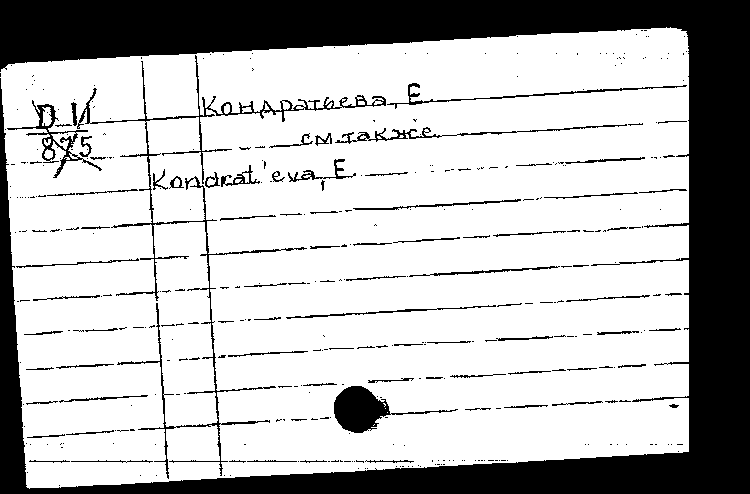 D И
875
Кондратьева, Е.
см. также
Kondrat'eva, E.